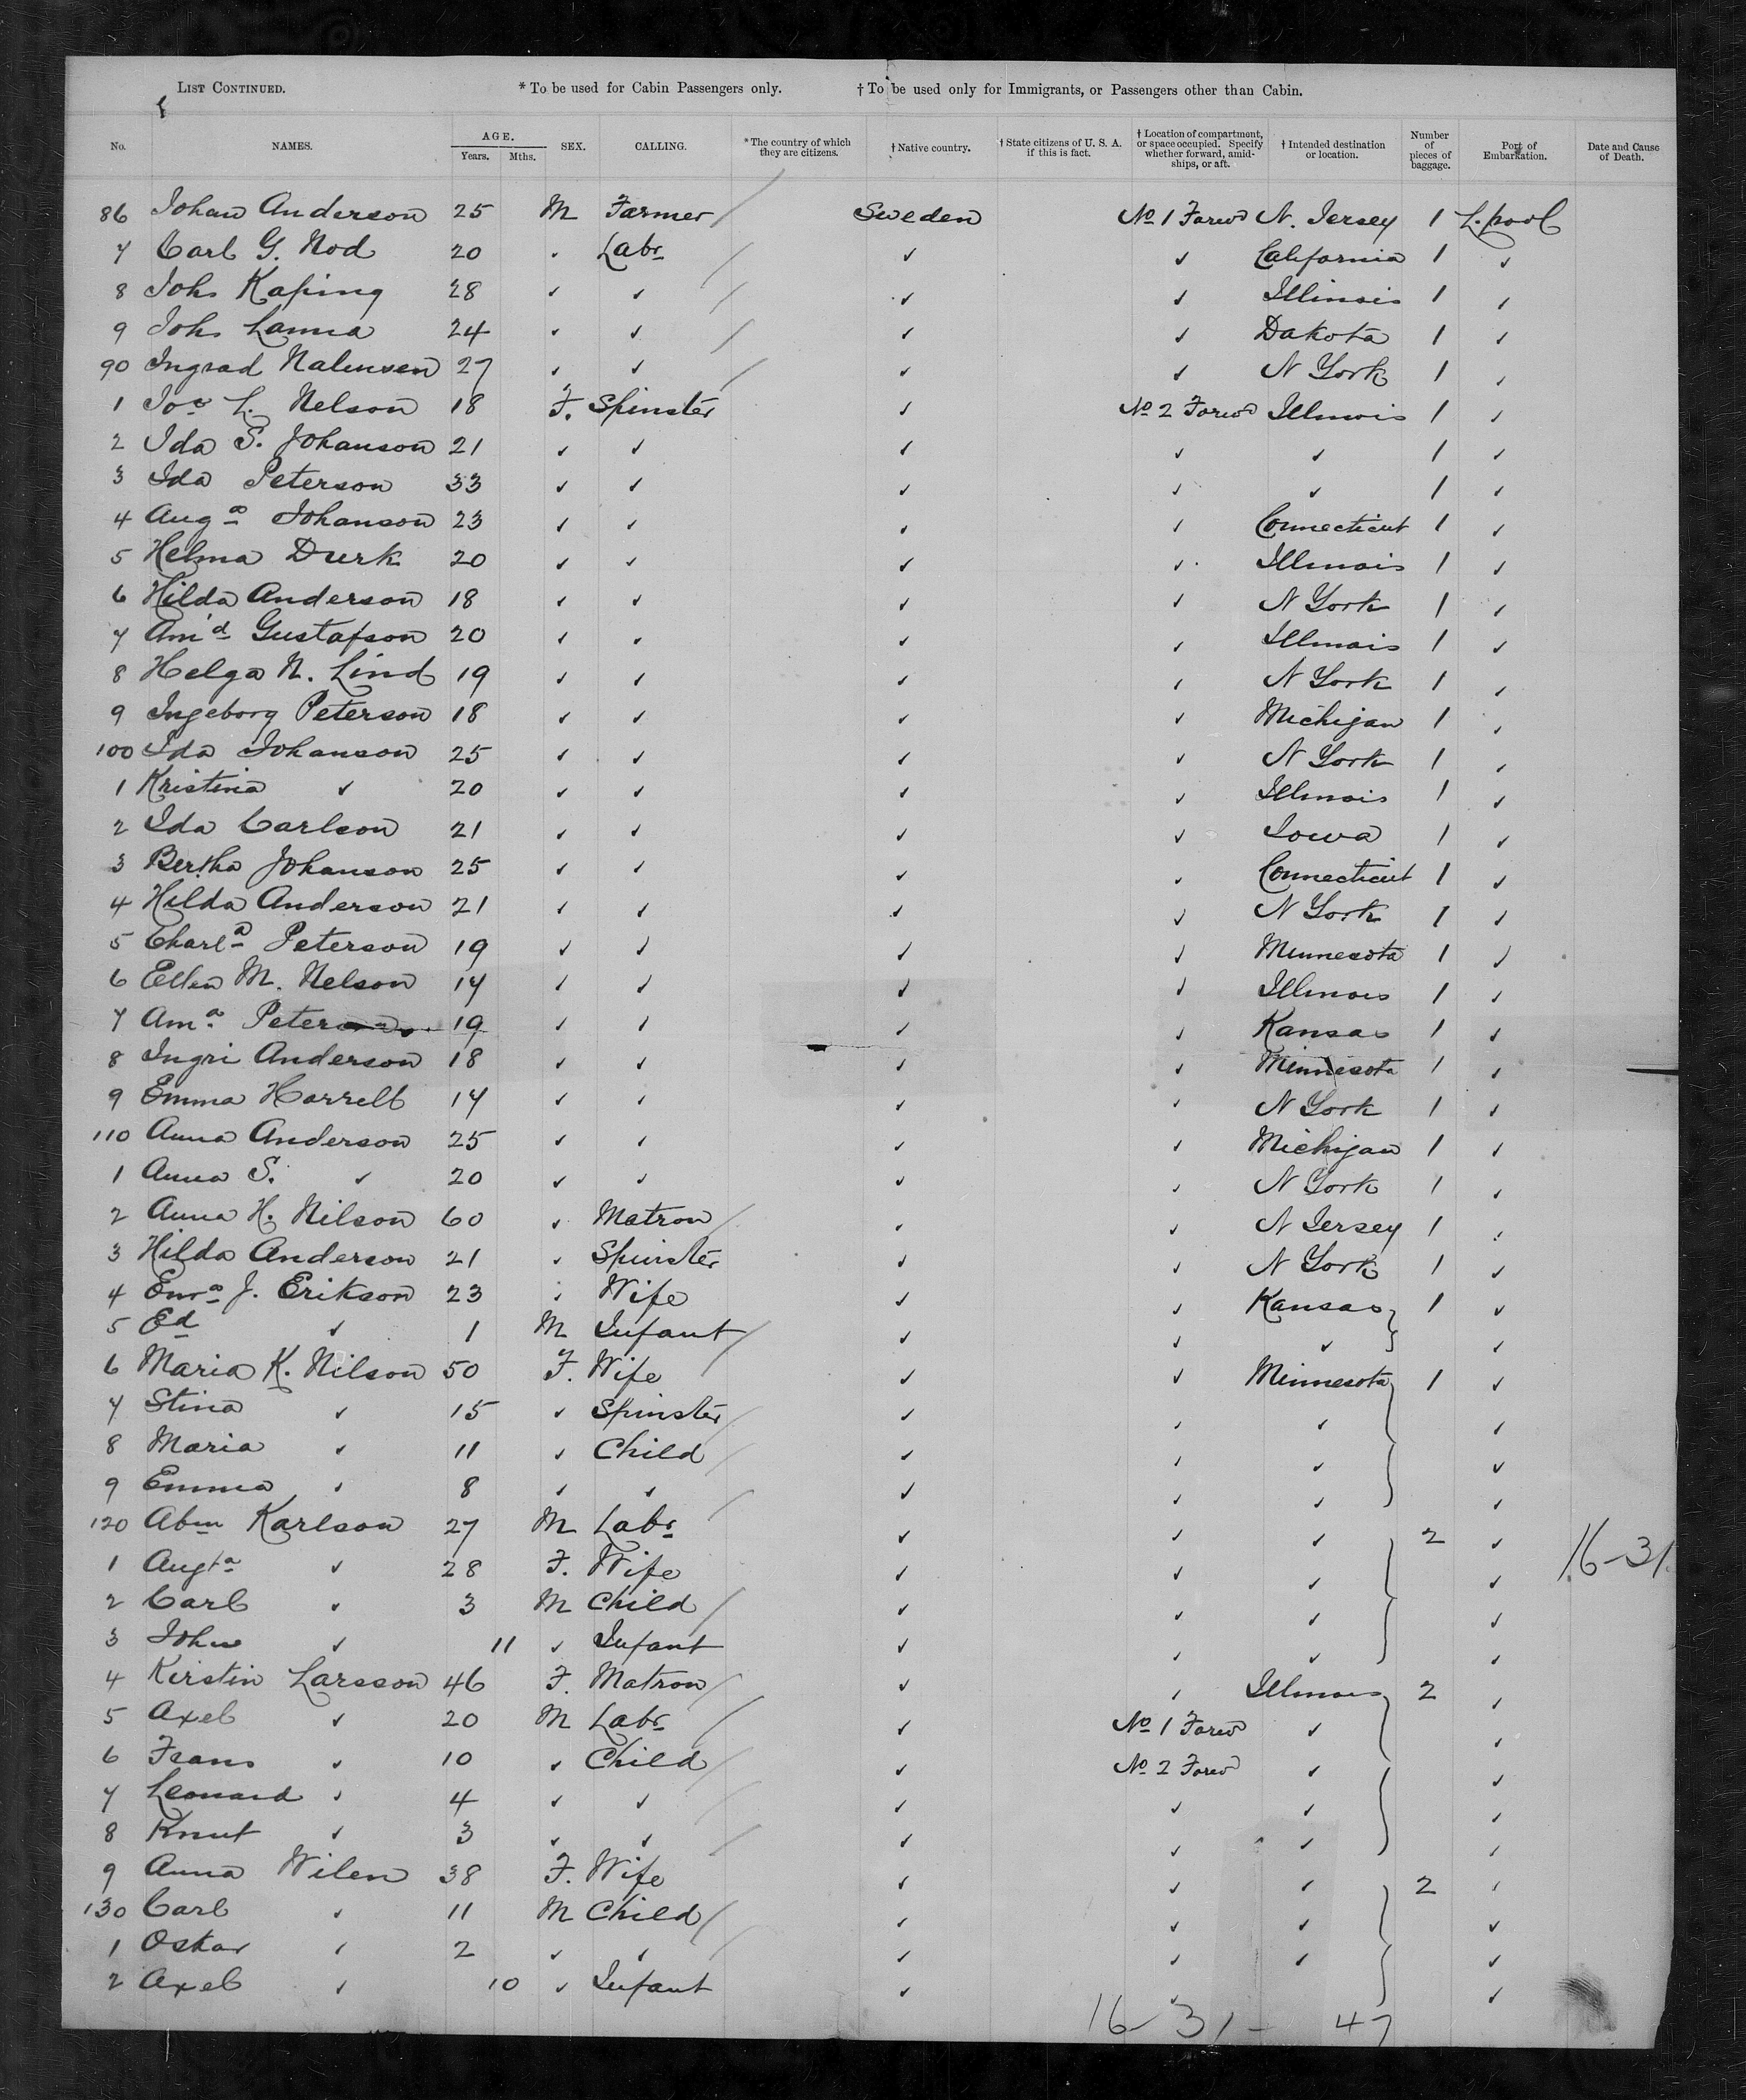 List Continued. * To be used for Cabin Passengers only. † To be used only for Immigrants, or Passengers other than Cabin.
No. NAMES. AGE. Years. Mths. SEX. CALLING. * The country of which they are citizens. † Native country. † State citizens of U. S. A. if this is fact. † Location of compartment, or space occupied. Specify whether forward, amidships, or aft. † Intended destination or location. Number of pieces of baggage. Port of Embarkation. Date and Cause of Death.
86 Johan Anderson 25 M Farmer / Sweden No 1 Forwd N. Jersey 1 L.pool
7 Carl G. Nod 20 " Labr / ✓ ✓ California 1 ✓
8 Johs Kaping 28 ✓ ✓ / ✓ ✓ Illinois 1 ✓
9 Johs Lanna 24 ✓ ✓ / ✓ ✓ Dakota 1 ✓
90 Ingrad 27 ✓ ✓ / ✓ ✓ N York 1 ✓
1 L. Nelson 18 F. Spinster ✓ No 2 Forwd Illinois 1 ✓
2 Ida S. Johanson 21 ✓ ✓ ✓ ✓ ✓ 1 ✓
3 Ida Peterson 33 ✓ ✓ ✓ ✓ ✓ 1 ✓
4 Auga Johanson 23 ✓ ✓ ✓ ✓ Connecticut 1 ✓
5 Helma Durk 20 ✓ ✓ ✓ ✓ Illinois 1 ✓
6 Hilda Anderson 18 ✓ ✓ ✓ ✓ N York 1 ✓
7 Amd Gustafson 20 ✓ ✓ ✓ ✓ Illinois 1 ✓
8 Helga N. Lind 19 ✓ ✓ ✓ ✓ N York 1 ✓
9 Ingeborg Peterson 18 ✓ ✓ ✓ ✓ Michigan 1 ✓
100 Ida Johanson 25 ✓ ✓ ✓ ✓ N York 1 ✓
1 Kristina ✓ 20 ✓ ✓ ✓ ✓ Illinois 1 ✓
2 Ida Carlson 21 ✓ ✓ ✓ ✓ Iowa 1 ✓
3 Bertha Johanson 25 ✓ ✓ ✓ ✓ Connecticut 1 ✓
4 Hilda Anderson 21 ✓ ✓ ✓ ✓ N York 1 ✓
5 Charla Peterson 19 ✓ ✓ ✓ ✓ Minnesota 1 ✓
6 Ellen M. Nelson 14 ✓ ✓ ✓ ✓ Illinois 1 ✓
7 Ama Peterson 19 ✓ ✓ ✓ ✓ Kansas 1 ✓
8 Ingri Anderson 18 ✓ ✓ ✓ ✓ Minnesota 1 ✓
9 Emma Harrell 14 ✓ ✓ ✓ ✓ N York 1 ✓
110 Anna Anderson 25 ✓ ✓ ✓ ✓ Michigan 1 ✓
1 Anna S. ✓ 20 ✓ ✓ ✓ ✓ N York 1 ✓
2 Anna H. Nilson 60 ✓ Matron / ✓ ✓ N Jersey 1 ✓
3 Hilda Anderson 21 ✓ Spinster ✓ ✓ N York 1 ✓
4 Ema J. Erikson 23 ✓ Wife ✓ ✓ Kansas 1 ✓
5 Ed ✓ 1 M Infant / ✓ ✓ ✓ ✓
6 Maria K. Nilson 50 F. Wife ✓ ✓ Minnesota 1 ✓
7 Stina ✓ 15 ✓ Spinster / ✓ ✓ ✓ ✓
8 Maria ✓ 11 ✓ Child / ✓ ✓ ✓ ✓
9 Emma ✓ 8 ✓ ✓ ✓ ✓ ✓ ✓
120 Abm Karlson 27 M Labr / ✓ ✓ ✓ 2 ✓
1 Augta ✓ 28 F. Wife ✓ ✓ ✓ ✓ 16-31
2 Carl ✓ 3 M Child / ✓ ✓ ✓ ✓
3 John ✓ 11 ✓ Infant ✓ ✓ ✓ ✓
4 Kirstin Larsson 46 F. Matron / ✓ ✓ Illinois 2 ✓
5 Axel ✓ 20 M Labr / ✓ No 1 Forwd ✓ ✓
6 Frans ✓ 10 ✓ Child / ✓ No 2 Forwd ✓ ✓
7 Leonard ✓ 4 ✓ ✓ / ✓ ✓ ✓ ✓
8 Knut ✓ 3 ✓ ✓ / ✓ ✓ ✓ ✓
9 Anna Wilen 38 F. Wife ✓ ✓ ✓ 2 ✓
130 Carl ✓ 11 M Child / ✓ ✓ ✓ ✓
1 Oskar ✓ 2 ✓ ✓ / ✓ ✓ ✓ ✓
2 Axel ✓ 10 ✓ Infant ✓ ✓ ✓
16-31- 47